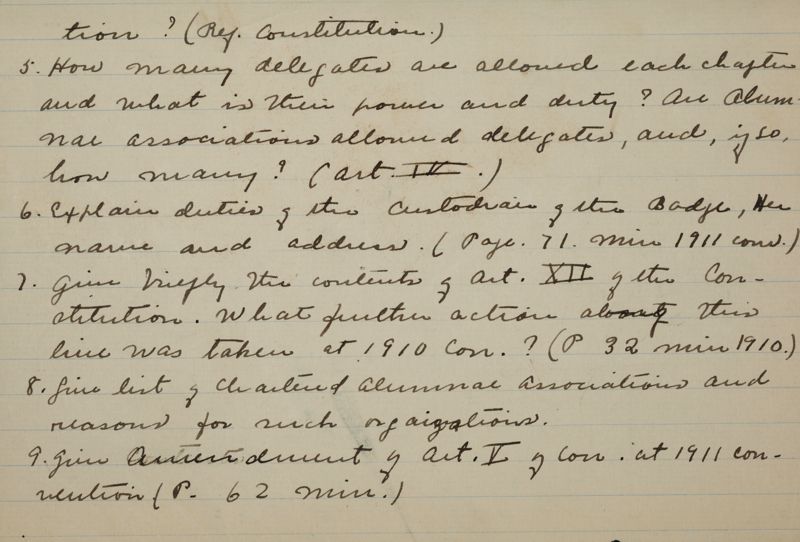 tion? (Ref. Constitution.)
5. How many delegates are allowed each chapter
and what is their power and duty? Are Alum-
nae associations allowed delegates, and, if so,
how many? (Art. IV.)
6. Explain duties of the Custodian of the Badge, Her
name and address. (Page. 71. Min 1911 conv.)
7. Give briefly the contents of Art. XII of the Con-
stitution. What further action along this
line was taken at 1910 Con.? (P 32 min 1910.)
8. Give list of chartered alumnae associations and
reasons for such orgaizations.
9. Give Amendment of Art. V of Con. at 1911 con-
vention (P. 62 min.)